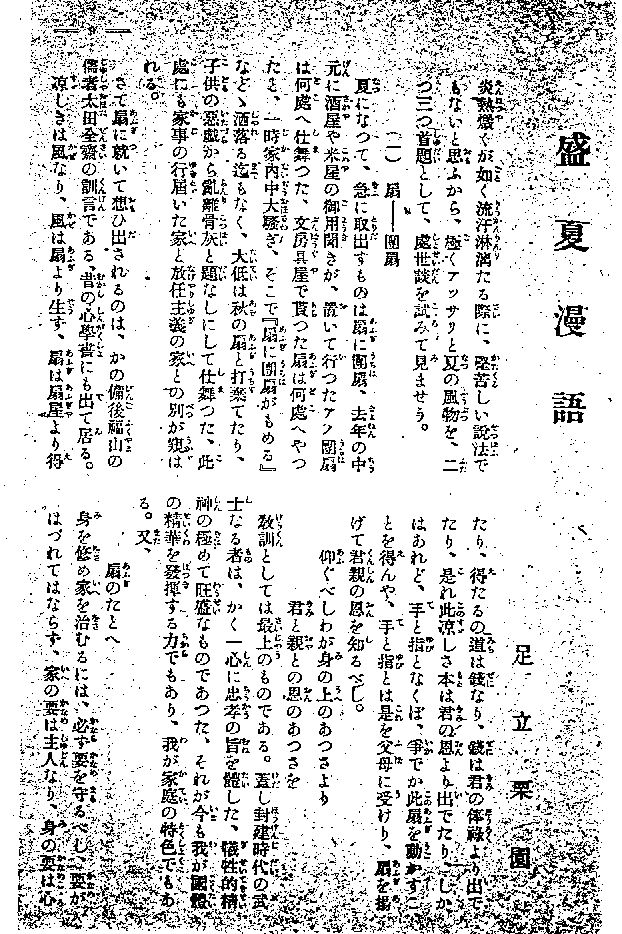 盛夏漫語
足立栗園
炎熱燬くが如く流汗淋漓たる際に、堅苦しい說法で
もないと思ふから、極くアッサリと夏の風物を、二
つ三つ首題として、處世談を試みて見ませう。
(一) 扇――團扇
夏になつて、急に取出すものは扇に團扇、去年の中
元に酒屋や米屋の御用聞きが、置いて行つたアノ團扇
は何處へ仕舞つた、文房具屋で貰つた扇は何處へやつ
たと、一時家内中大騷ぎ、そこで『扇に團扇がもめる』
などゝ洒落る迄もなく、大低は秋の扇と打棄てたり、
子供の惡戲から亂離骨灰と題なしにして仕舞つた、此
處にも家事の行屆いた家と放任主義の家との別が現は
れる。
さて扇に就いて想ひ出されるのは、かの備後福山の
儒者太田全齋の訓言である、昔の心學書にも出て居る。
凉しきは風なり、風は扇より生ず、扇は扇屋より得
たり、得たるの道は錢なり、錢は君の俸祿より出で
たり、是れ此凉しさ本は君の恩より出でたり、しか
はあれど、手と指となくば、爭でか此扇を動かすこ
とを得んや、手と指とは是を父母に受けり、扇を揚
げて君親の恩を知るべし。
仰ぐべしわが身の上のあつさより
君と親との恩のあつさを
敎訓としては最上のものである。蓋し封建時代の武
士なる者は、かく一心に忠孝の旨を體した、犠牲的精
神の極めて旺盛なものであつた、それが今も我が國體
の精華を發揮する力でもあり、我が家庭の特色でもあ
る。又、
扇のたとへ
身を修め家を治むるには、必ず要を守るべし、要が
はづれてはならず、家の要は主人なり、身の要は心